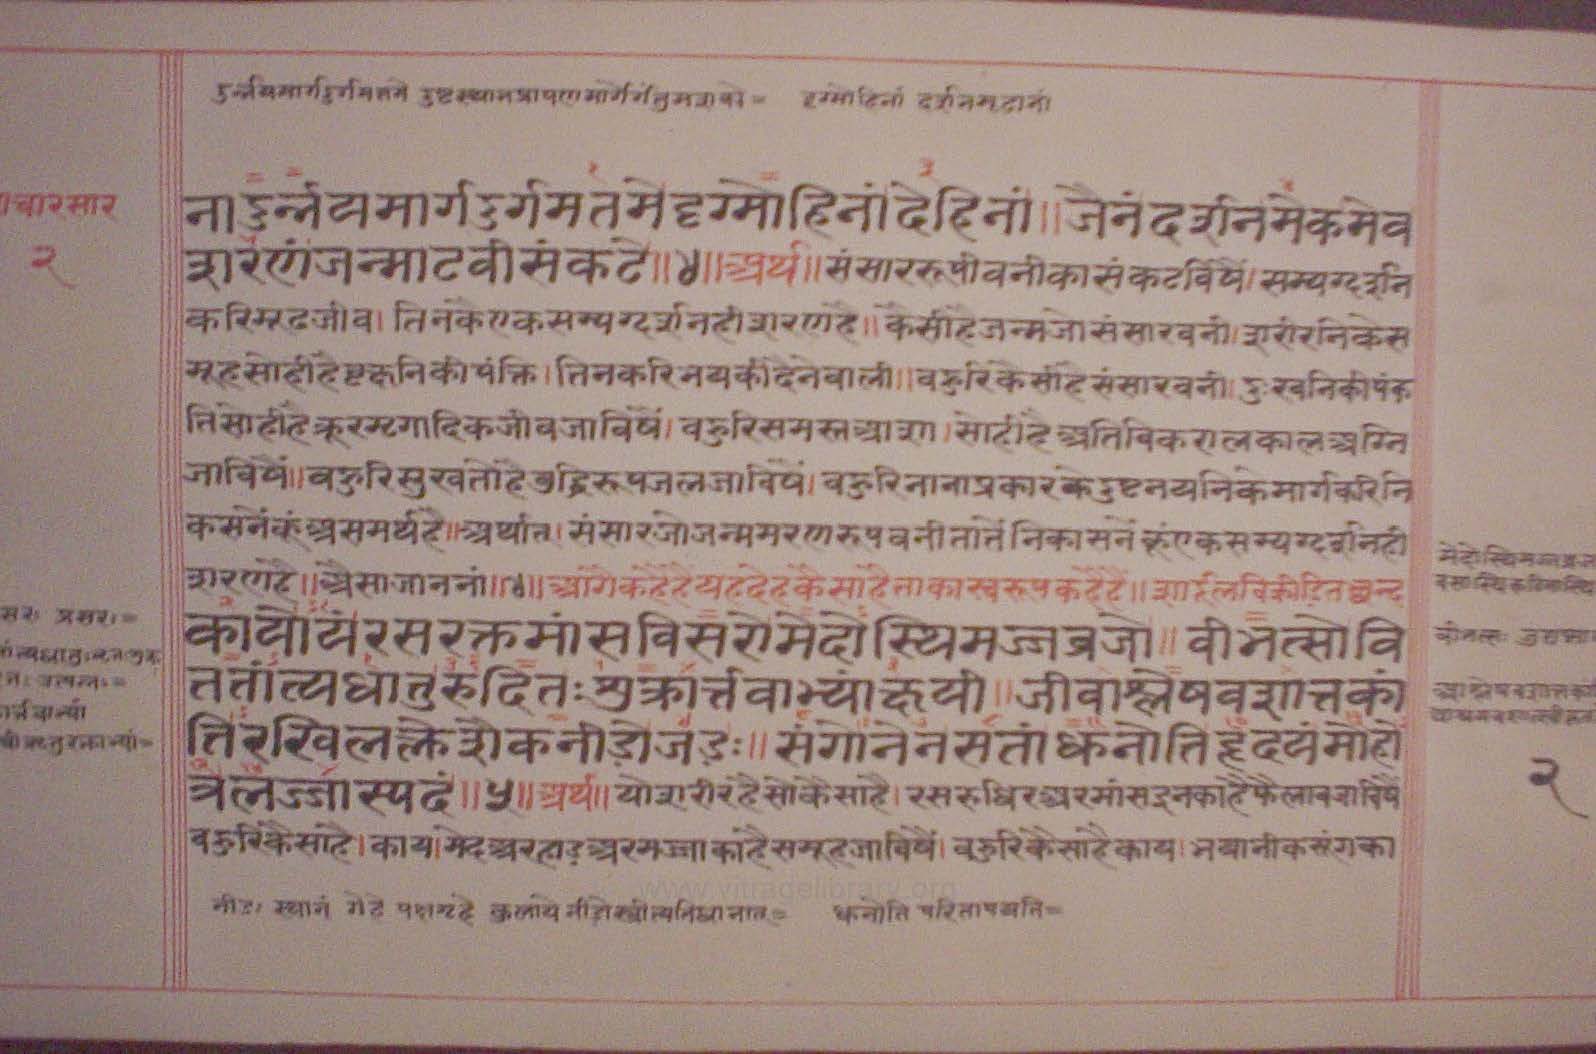 दुर्न्नयमार्गदुर्गमतमे दुष्टस्थानप्रापणमार्गैर्गंतुमशक्ये = दृग्मोहिनां दर्शनमूढानां
नादुर्न्नयमार्गदुर्गमतमेदृग्मोहिनांदेहिनां॥जैनंदर्शनमेकमेव
चारसार
२
शरणंजन्माटवीसंकटे॥४॥अर्थ॥संसाररूपीवनीकासंकटविषैं।सम्यग्दर्शन
करिमूढजीव।तिनकैएकसम्यग्दर्शनहीशरणहै॥कैसीहैजन्मजोसंसारवनी।शरीरनिकेस
मूहसोहीहैवृक्षनिकीपंक्ति।तिनकरिभयकीदैनेवाली॥वहुरिकैसीहैसंसारवनी।दुःखनिकीपंक
तिसोहीहैक्रूरमृगादिकजीवजाविषैं।वहुरिसमस्तआशा।सोहीहैअतिविकरालकालअग्नि
जाविषैं॥वहुरिसुखतोहैवुद्धिरूपजलजाविषैं।वहुरिनानाप्रकारकेदुष्टनयनिकेमार्गकरिनि
कसनेंकूंअसमर्थहै॥अर्थात।संसारजोजन्ममरणरूपवनीतातैंनिकासनेंकूंएकसम्यग्दर्शनही
शरणहै॥अैसाजाननां॥४॥आंगैकहैहैंयहदेहकैसाहैताकास्वरूपकहैहैं॥शार्दूलविक्रीडितछन्द
कायोयंरसरक्तमांसविसरोमेदोस्थिमज्जव्रजो॥वीभत्सोवि
ततांत्यधातुरुदितःशुक्रार्त्तवाभ्यांद्वयी॥जीवाश्लेषवशात्तकां
तिरखिलक्लेशैकनीडोजडः॥संगोनेनसतांधुनोतिहृदयंमोहो
त्रलज्जास्पदं॥५॥अर्थ॥योशरीरहैसोकैसाहै।रसरुधिरअरमांसइनकाहैफैलावजाविषैं
वहुरिकैसाहै।काय।मेदअरहाडअरमज्जाकाहैसमूहजाविषैं।वहुरिकैसाहैकाय।भयानीकसंगका
२
नीडः स्थानं गेहे पक्षगृहे कुलाये नीडोस्त्रीत्यभिधानात् = धुनोति परितापयति =
www.vitragelibrary.org